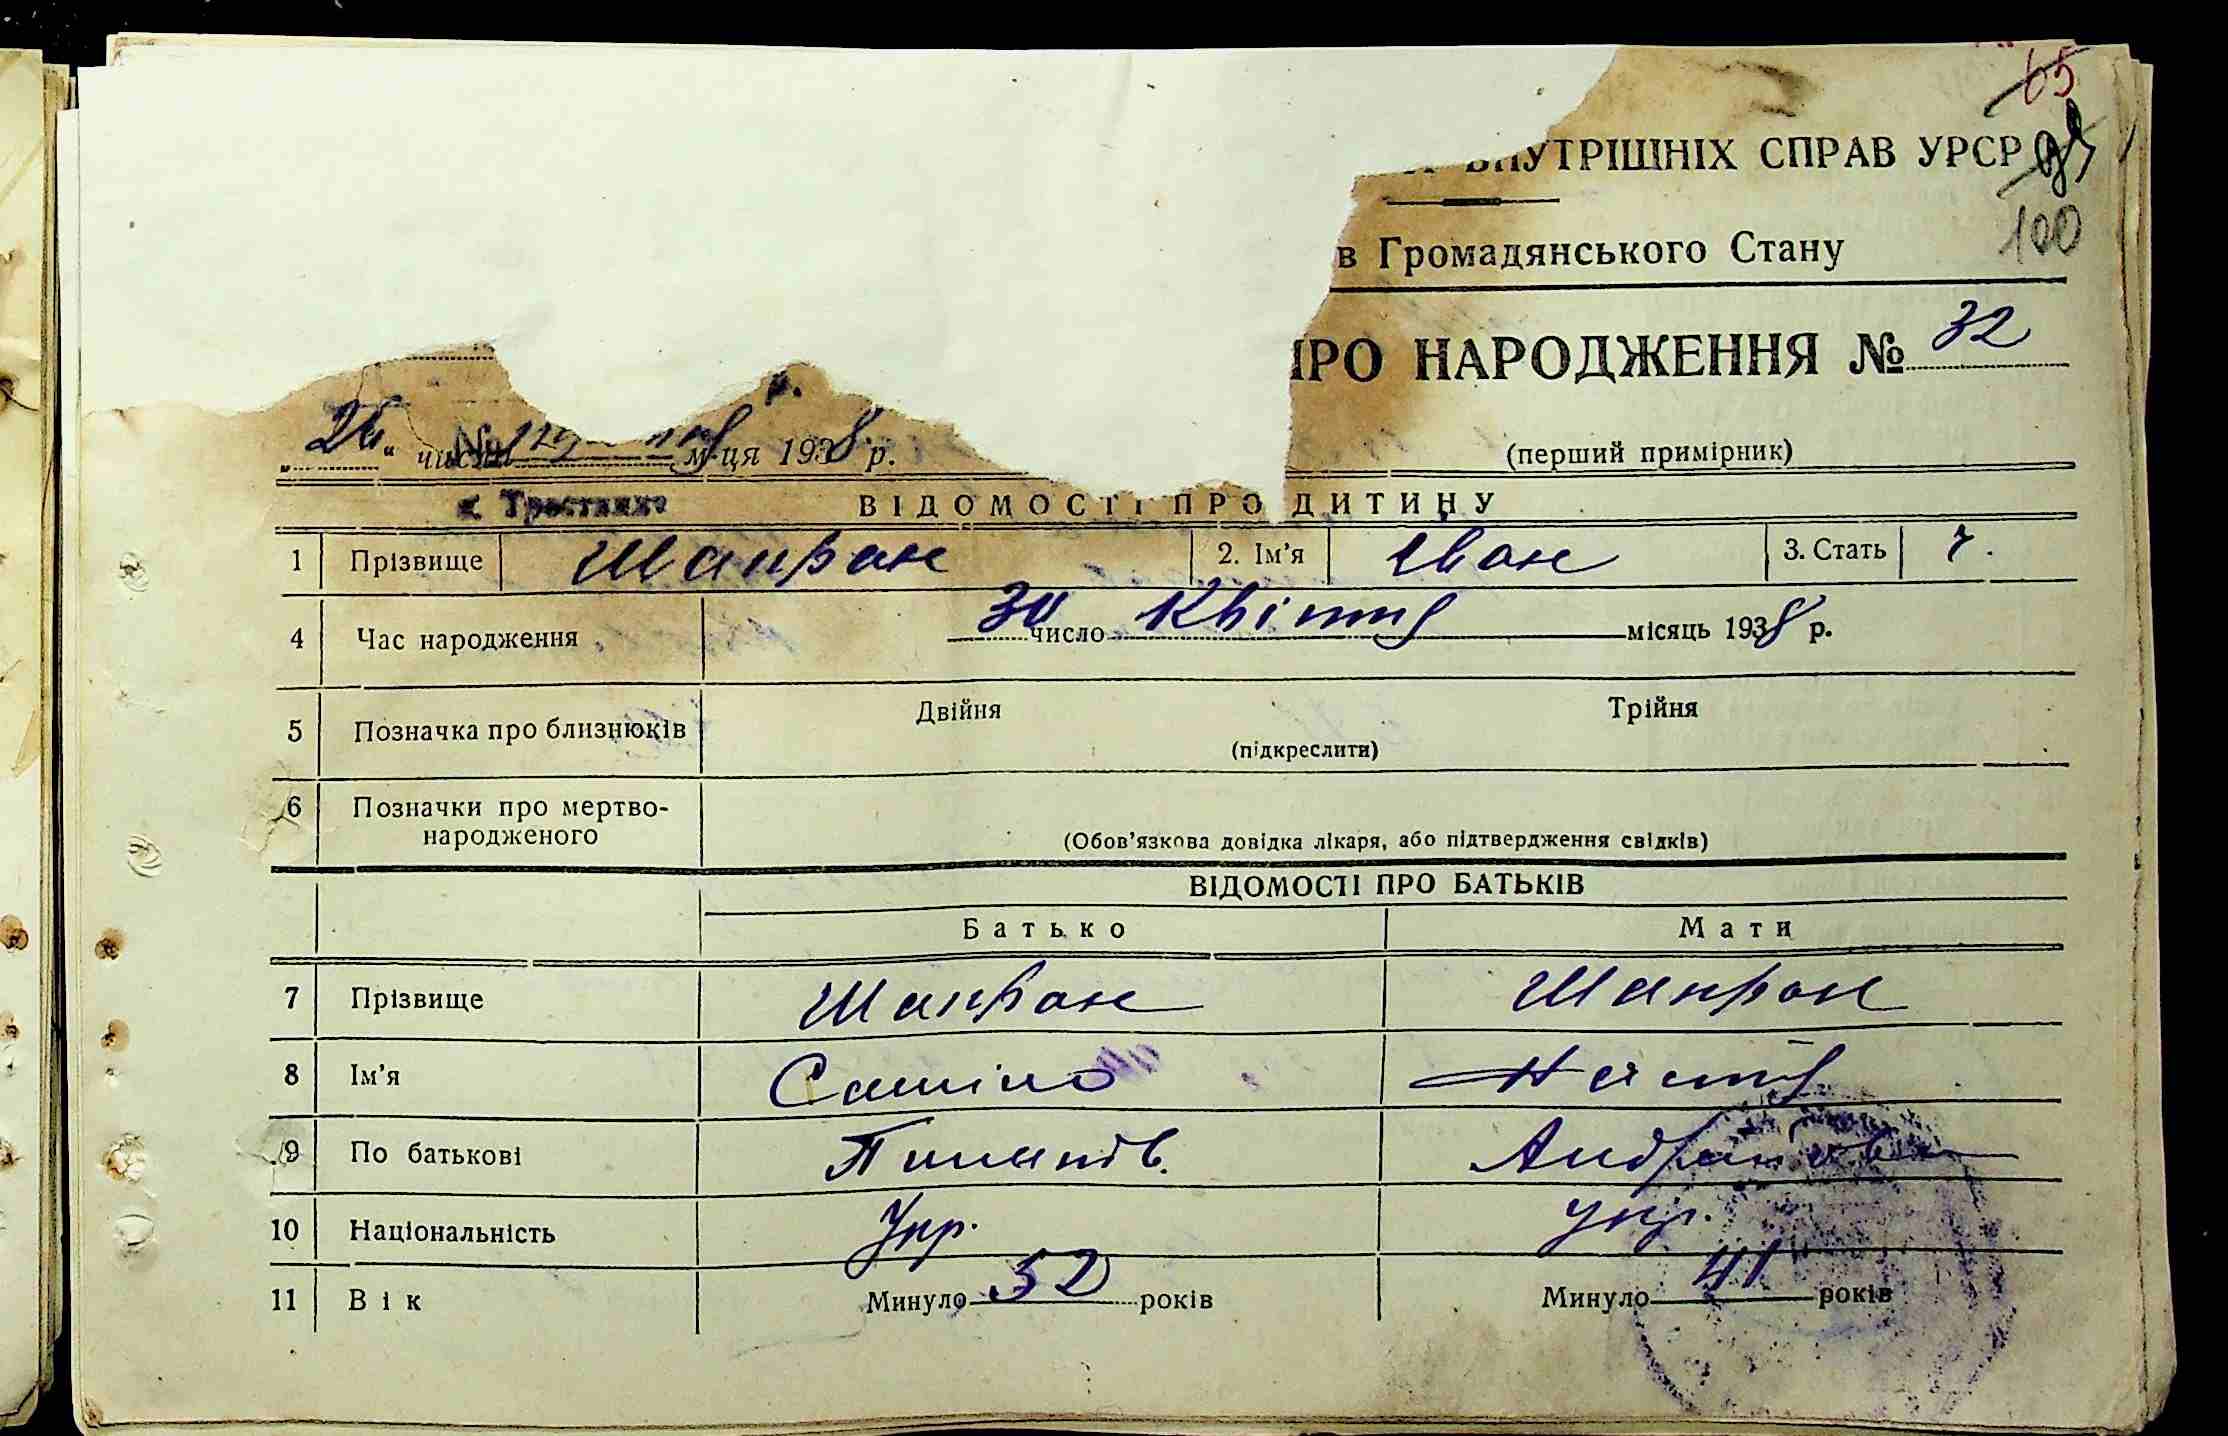 65
95
ВНУТРІШНІХ СПРАВ УРСР
100
в Громадянського Стану
ПРО НАРОДЖЕННЯ № 32
„26“ числа м-ця 1938 р.
(перший примірник)
с. Тростянка
ВІДОМОСТІ ПРО ДИТИНУ
1 Прізвище Шапран 2. Ім'я Іван 3. Стать ч.
4 Час народження 30 число Квітня місяць 1938 р.
5 Позначка про близнюків Двійня Трійня
(підкреслити)
6 Позначки про мертво-
народженого
(Обов'язкова довідка лікаря, або підтвердження свідків)
ВІДОМОСТІ ПРО БАТЬКІВ
Батько Мати
7 Прізвище Шапран Шапран
8 Ім'я Саміло Настя
9 По батькові Пилипів. Андріївна
10 Національність Укр. укр.
11 Вік Минуло 52 років Минуло 41 років